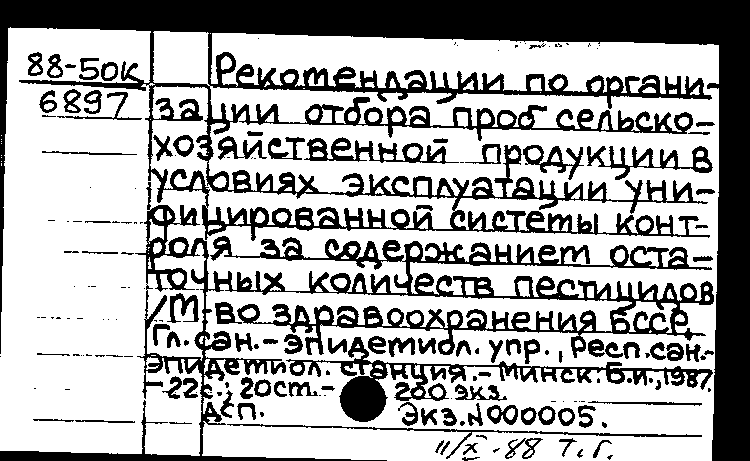 88-50К
6897
Рекомендации по органи-
зации отбора проб сельско-
хозяйственной продукции в
условиях эксплуатации уни-
фицированной системы конт-
роля за содержанием оста-
точных количеств пестицидов
/М-во здравоохранения БССР,
Гл. сан.-эпидемиол. упр., Респ. сан.-
эпидемиол. станция.- Минск: Б.и., 1987.
-22с.; 20см.- 200 экз.
ДСП. Экз.N000005.
11/X-88 Т.Г.